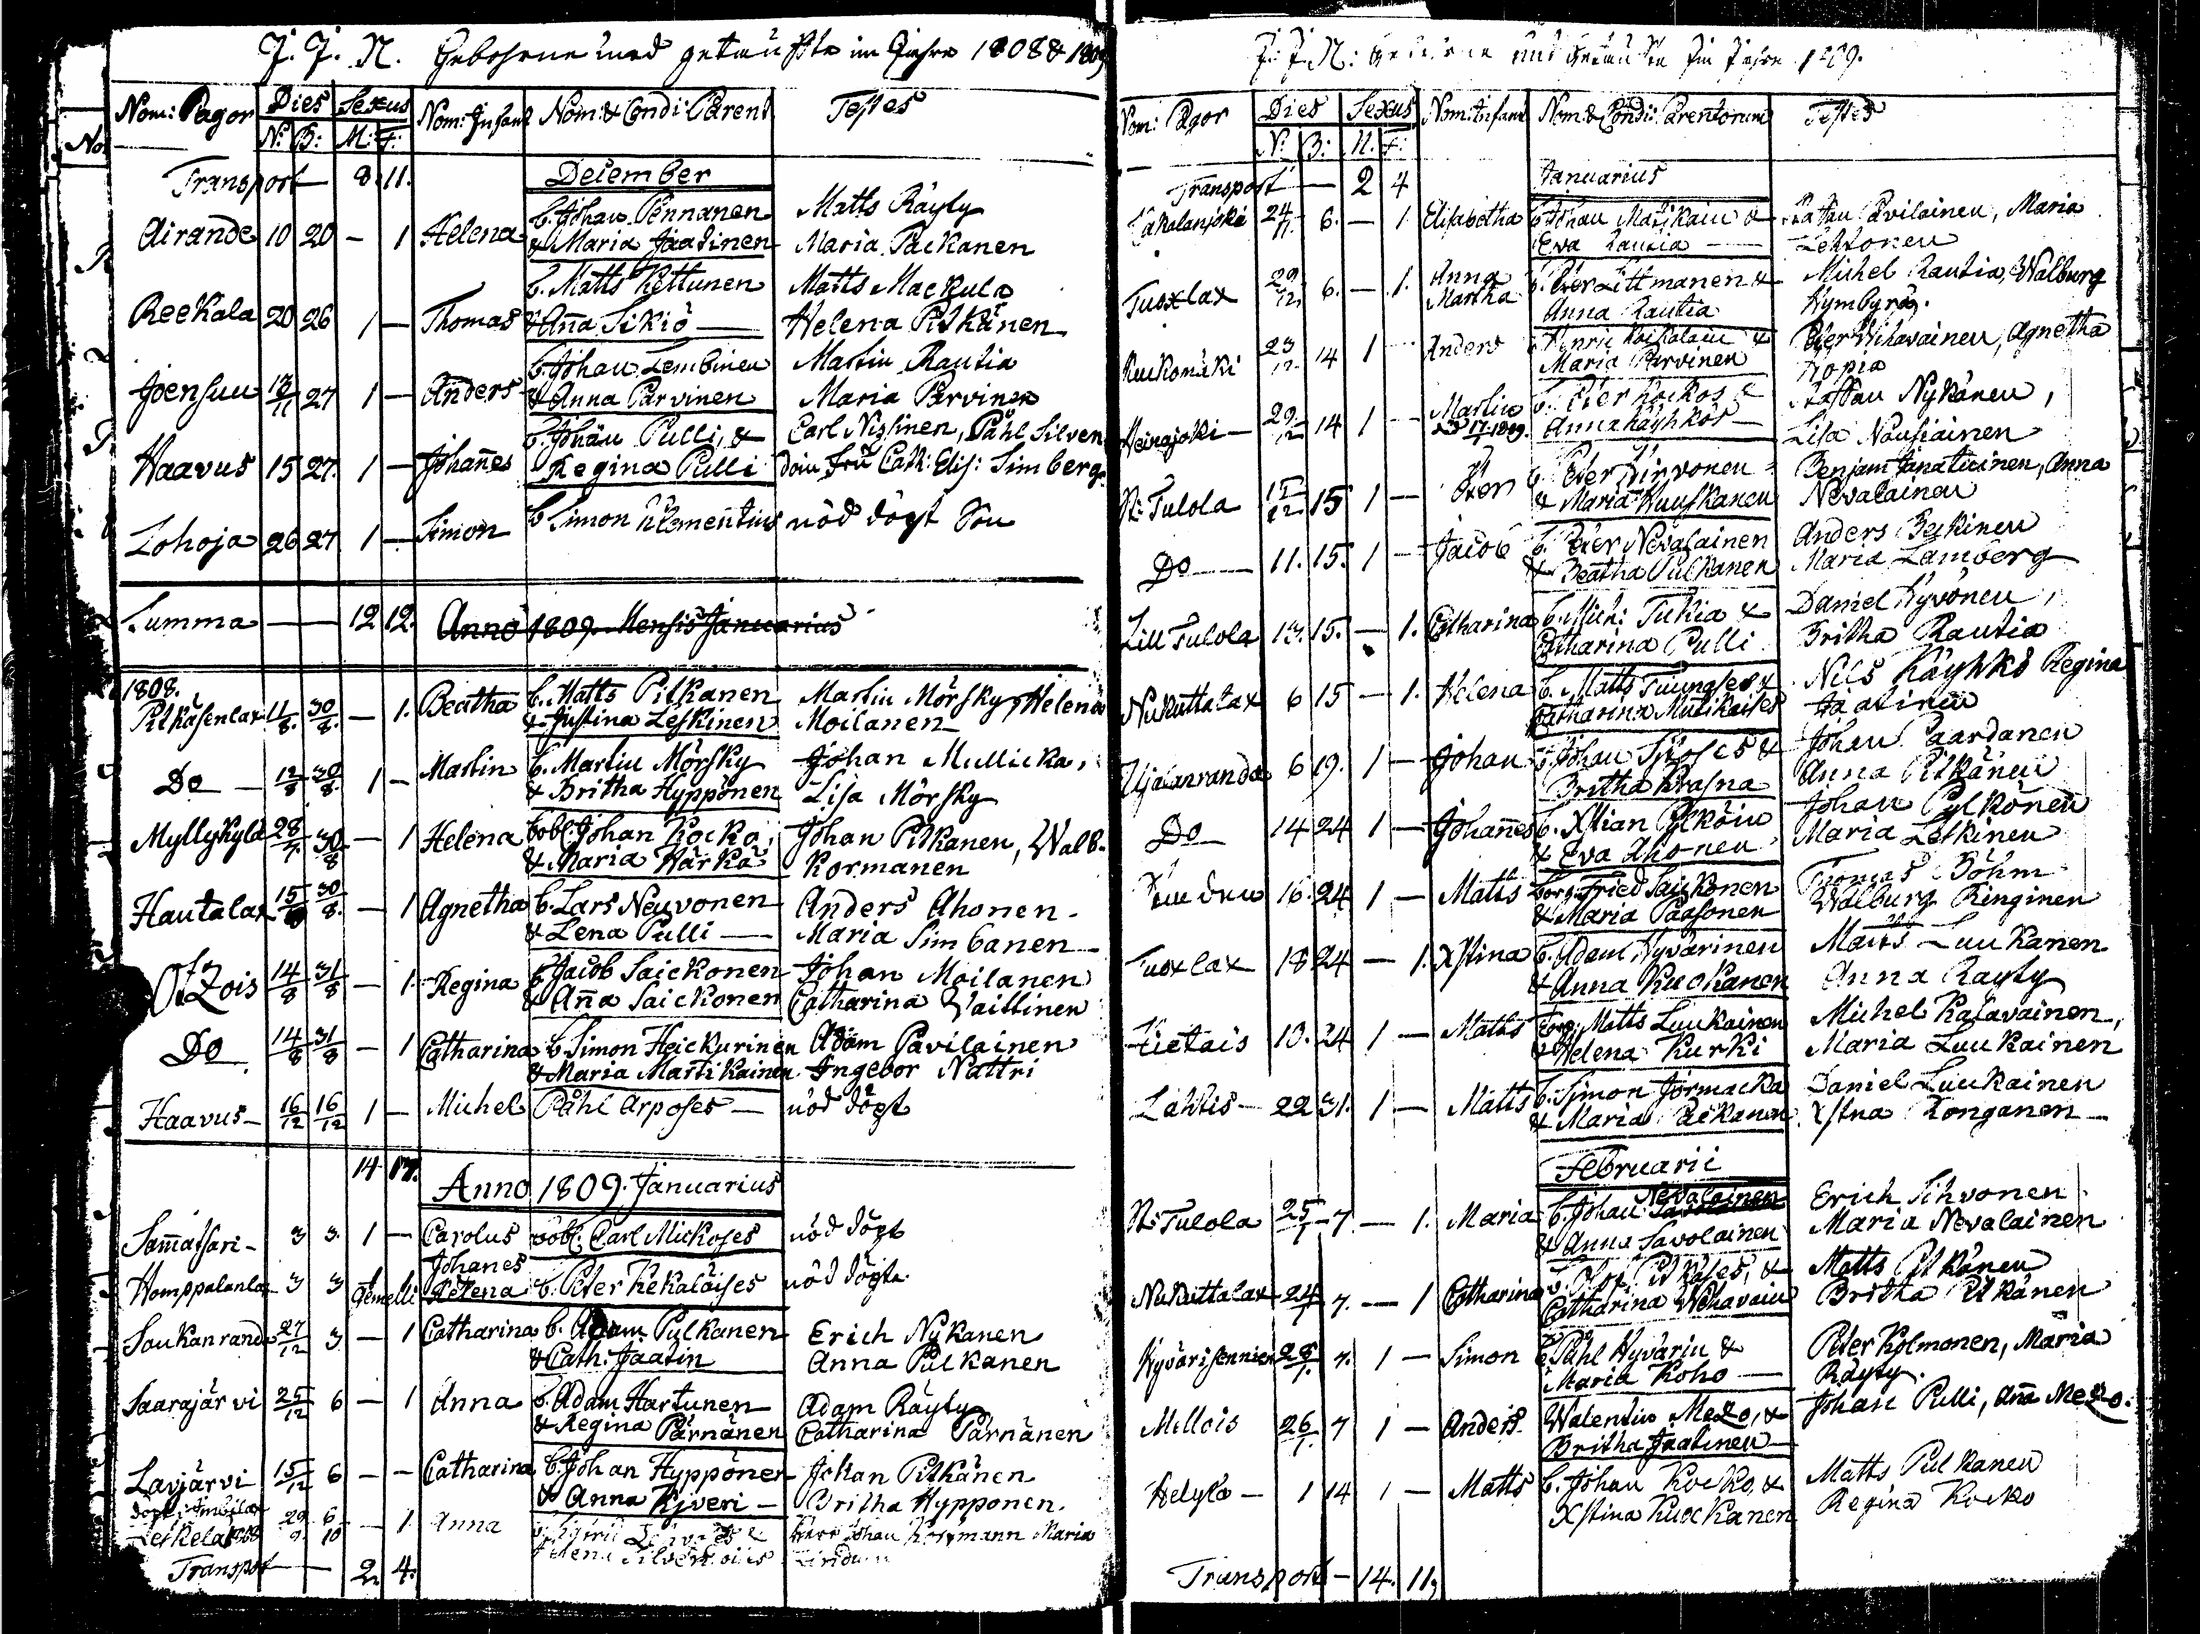 J. J. N. Gebohrne und getaufte im Jahre 1808 & 1809
Nom: Pagor Dies Sexus Nom: Infant Nom: & Condi: Parent Testes
N: B: M: F:
Transport — 8. 11. December
Airande 10 20 — 1 Helena b. Johan Pennanen Matts Räyty
& Maria Jaatinen Maria Packanen
Reekala 20 26 1 — Thomas b. Matts Kettunen Matts Mackula
& Aña Sikiö — Helena Pitkänen
Joensuu 17/11 27 1 — Anders b. Johan Lembinen Martin Rautia
& Anna Parvinen Maria Parvinen
Haavus 15 27. 1 — Johañes b. Johan Pulli, & Carl Nissinen, Påhl Silven
Regina Pulli Cath: Elis: Simberg
Lohoja 26 27 1 — Simon b. Simon Klementius nöd döpt Son
Summa — 12 12. Anno 1809. Mensis Januarius
1808.
Pitkäsenlax 11/8. 30/8. — 1. Beatha b. Matts Pitkanen Martin Mörsky, Helena
& Justina Leskinen Moilanen
Do — 12/8 30/8. 1 — Martin b. Martin Mörsky Johan Mullicka,
& Britha Hyppönen Lisa Mörsky
Myllykylä 28/7. 30/8 — 1 Helena bobl: Johan Kocko, Johan Pitkanen, Walb.
& Maria Härkä Kormanen
Hautalax 15/8 30/8. — 1 Agnetha b. Lars Neuvonen Anders Ahonen.
& Lena Pulli — Maria Simbanen
Otzois 14/8 31/8 — 1. Regina b. Jacob Saickonen Johan Moilanen
& Aña Saickonen Catharina Waittinen
Do 14/8 31/8 — 1 Catharina b. Simon Heickurinen Adam Pavilainen
& Maria Martikainen Ingebor Nattri
Haavus — 16/12 16/12 1 — Michel Påhl Arposes — nöd döpt
14 17. Anno 1809. Januarius
Sam̃atsari — 3 3. 1 — Carolus bobl: Carl Mickoses nöd döpt
Homppalanlax 3 3 1 1 Gemelli Johanes
Helena b. Peter Kekaläises nöd döpte
Soukanrand 27/12 3 — 1 Catharina b. Adam Pulkanen Erich Nykanen
& Cath: Jaatin Anna Pulkanen
Saarajärvi 25/12 6 — 1 Anna b. Adam Hartunen Adam Räyty
& Regina Pärnänen Catharina Pärnänen
Lavjärvi 15/12 6 — — Catharina b. Johan Hyppönen Johan Pitkänen
& Anna Kiveri — Britha Hypponen.
Leskela 1808 29/9 6/10 — 1. Anna Johan Maria
Transport — 2. 4.
J: J: N: und Im Jahre 1809.
Nom: Pagor Dies Sexus Nom: Infant Nom: & Condi: Parentorum Testes
N: B: M: F:
Transport — 2 4 Januarius
24/11. 6. — 1. Elisabetha b. Johan Matikain & Pavilainen, Maria
Eva Rautia — Lehtonen
Tuoxlax 29/12. 6. — 1. Anna
Martha b. Peter Littmanen & Michel Rautia, Walburg
Anna Rautia
Ruckomäki 23/12. 14 1 — Anders b. Henric & Peter Wihavainen, Agnetha
Maria Parvinen
Heinajoki — 29/12 14 1 — Martin b. Peter Kockos & Staffan Nykänen,
Anna Käyhkös — Lisa Nousiainen
St: Tulola 15/12 15 1 — Peter b. Peter Hirvonen Benjam: Janatuinen, Anna
& Maria Kuuskanen Nevalainen
Do — 11. 15. 1 — Jacob b. Peter Nevalainen Anders Beckinen
& Beatha Pulkanen Maria Lamberg
Lill Tulola 13. 15. — 1. Catharina b. Mich: Tukia & Daniel Hyvönen,
Catharina Pulli Britha Rautia
Nukuttalax 6 15 — 1. Helena b. Matts & Nils Käyhkö Regina
Catharina Mutikaises Jaatinen
Ujalanranda 6 19. 1 — Johan b. Johan & Johan Paardanen
Britha Krasna Anna Pitkänen
Do 14 24 1 — Johañes b. Xstian Pylköin Johan Pylkönen
& Eva Ahonen Maria Leskinen
16. 24 1 — Matts Fried Saickonen Thomas Böhm
& Maria Paasonen Walburg Ringinen
Tuoxlax 18 24 — 1. Xstina b. Adam Hyvärinen Matts Luukanen
& Anna Kuockanen Anna Rayty
Kietais 13. 24 1 — Matts Matts Luukainen Michel Kalavainen,
& Helena Kurki Maria Luukainen
Lahtis — 22 31. 1 — Matts b. Simon Jormacka Daniel Luukainen
& Maria Xstna Ronganen —
Februarii
St: Tulola 25/1 7 — 1. Maria b. Johan Nevalainen Erich Sihvonen
& Anna Savolainen Maria Nevalainen
Nukuttalax 24/1 7. — 1 Catharina b. Olof Pitkäses, & Matts Pitkänen
Catharina Wihavain Britha Pitkänen
Hyvärisennien 28/1. 7. 1 — Simon b. Påhl Hyvärin & Peter Kolmonen, Maria
Maria Koho — Räyty.
Mellois 26/1. 7 1 — Anders Walentin Mezo, & Johan Pulli, Aña Mezo.
Britha Jaatinen —
Helylä — 1 14 1 — Matts b. Johan Kocko, & Matts Pulkanen
Xstina Kuockanen Regina Kocko
Transport — 14. 11,